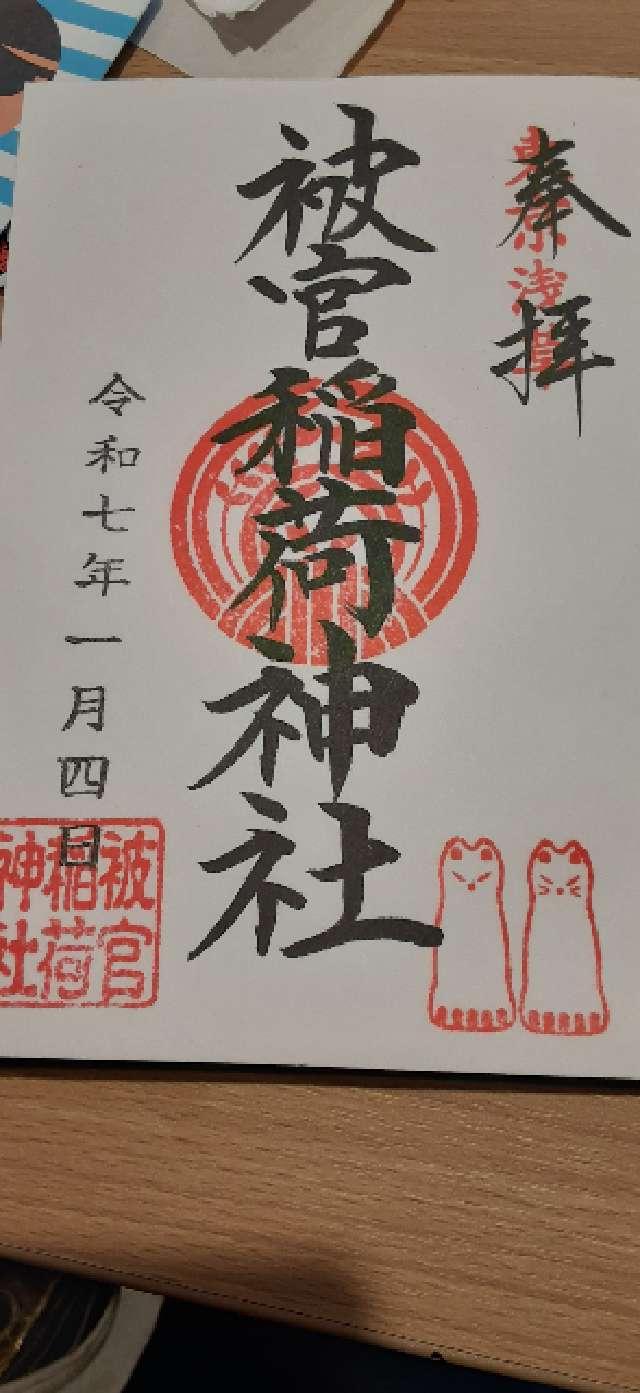 奉拝
東京浅草
被官稲荷神社
令和七年一月四日
被官
稲荷
神社